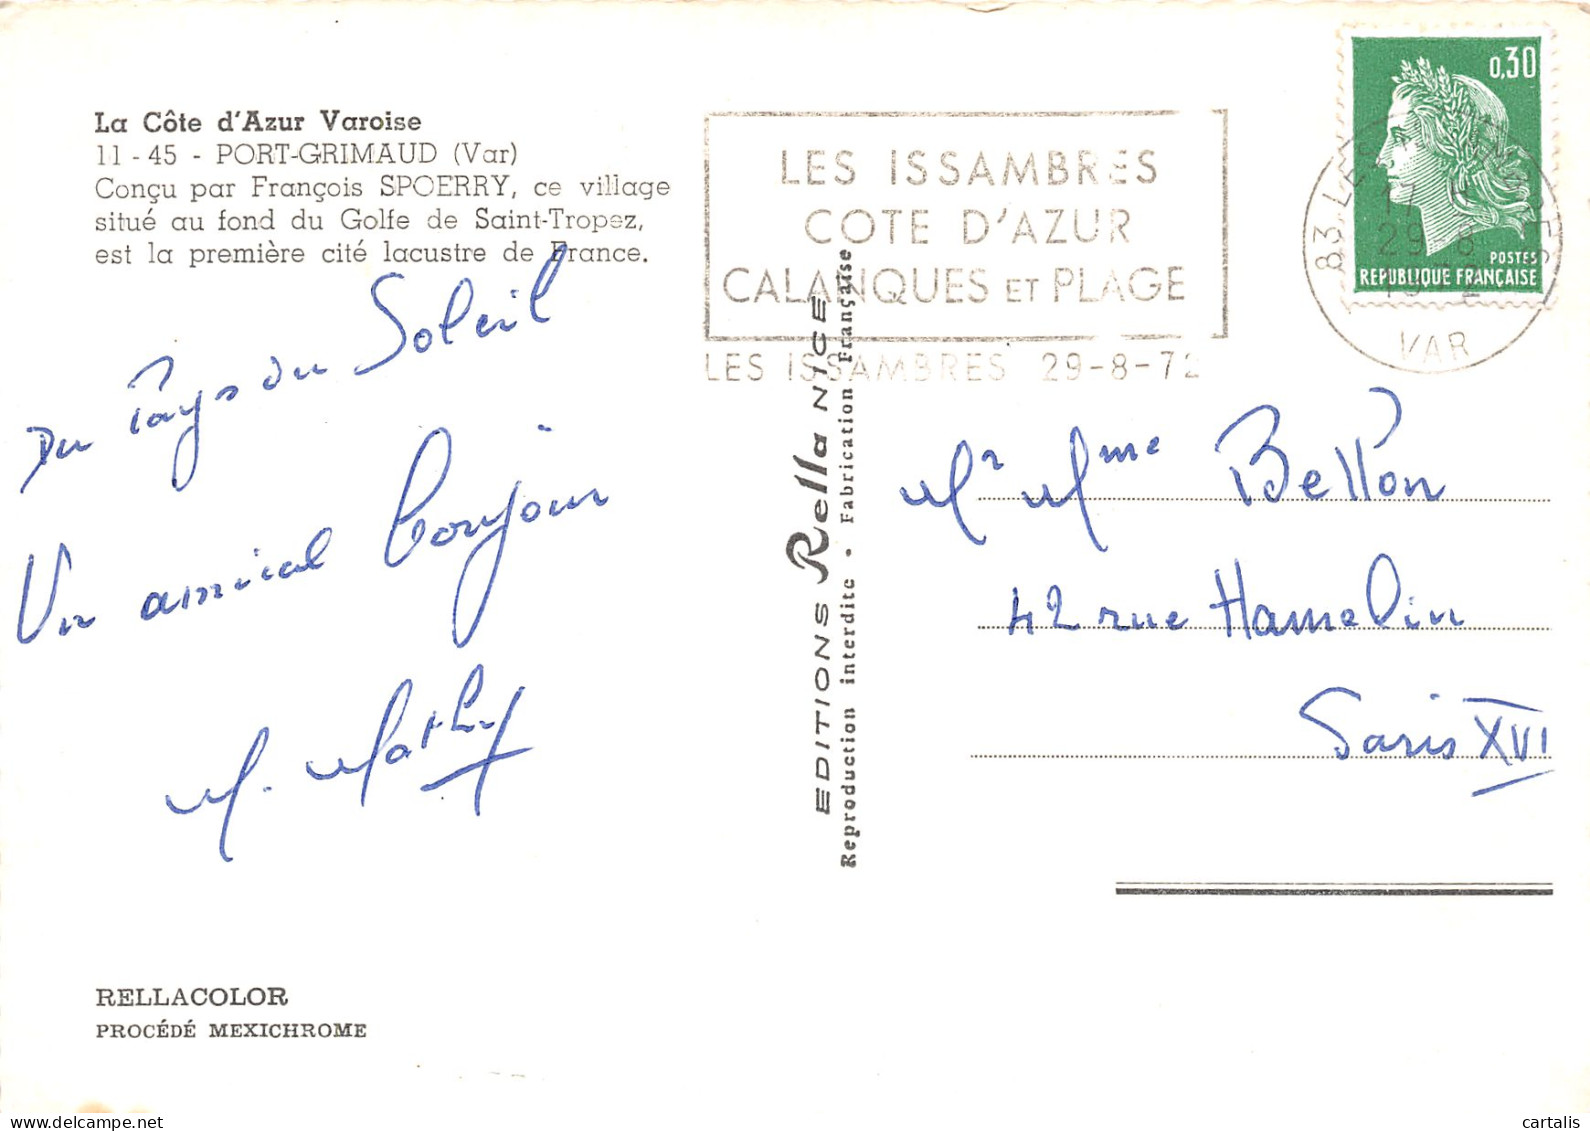 La Côte d'Azur Varoise
11 - 45 - PORT-GRIMAUD (Var)
Conçu par François SPOERRY, ce village
situé au fond du Golfe de Saint-Tropez,
est la première cité lacustre de France.
Du Pays du Soleil
Un amical bonjour
M. Mathy
RELLACOLOR
PROCÉDÉ MEXICHROME
EDITIONS Rella NICE
Reproduction interdite - Fabrication Française
LES ISSAMBRES
COTE D'AZUR
CALANQUES ET PLAGE
LES ISSAMBRES 29-8-72
0,30
POSTES
REPUBLIQUE FRANÇAISE
83 LES ISSAMBRES
17 H
29-8
VAR
Mr Mme Bellon
42 rue Hamelin
Paris XVI
cartalis